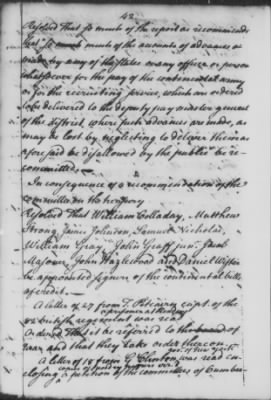 42
Resolved That so much of the report as recommends
that so much of the accounts of advances as
made by any of the states or any officer or person
whatsoever for the pay of the continental army
or for the recruiting service, which are ordered
to be delivered to the deputy pay master general
of the district where such advances are made, as
may be lost by neglecting to deliver them as
aforesaid be disallowed by the public be re-
committed.
In consequence of a recommendation of the
committee on the treasury
Resolved That William Colladay, Matthew
Strong, James Johnston, Samuel Nicholas,
William Gray, John Graff junr. Jacob
Masoner, John Hazlewood and Daniel Wister
be appointed signers of the continental bills
of credit.
A letter of 27 from T. Pitcairn capt. of the
82 british regiment was read
a prisoner at Reading
Ordered That it be referred to the board of
war and that they take order thereon
A letter of 15 from G. Clinton was read en-
gov. of New York
closing a petition of the committees of Cumber-